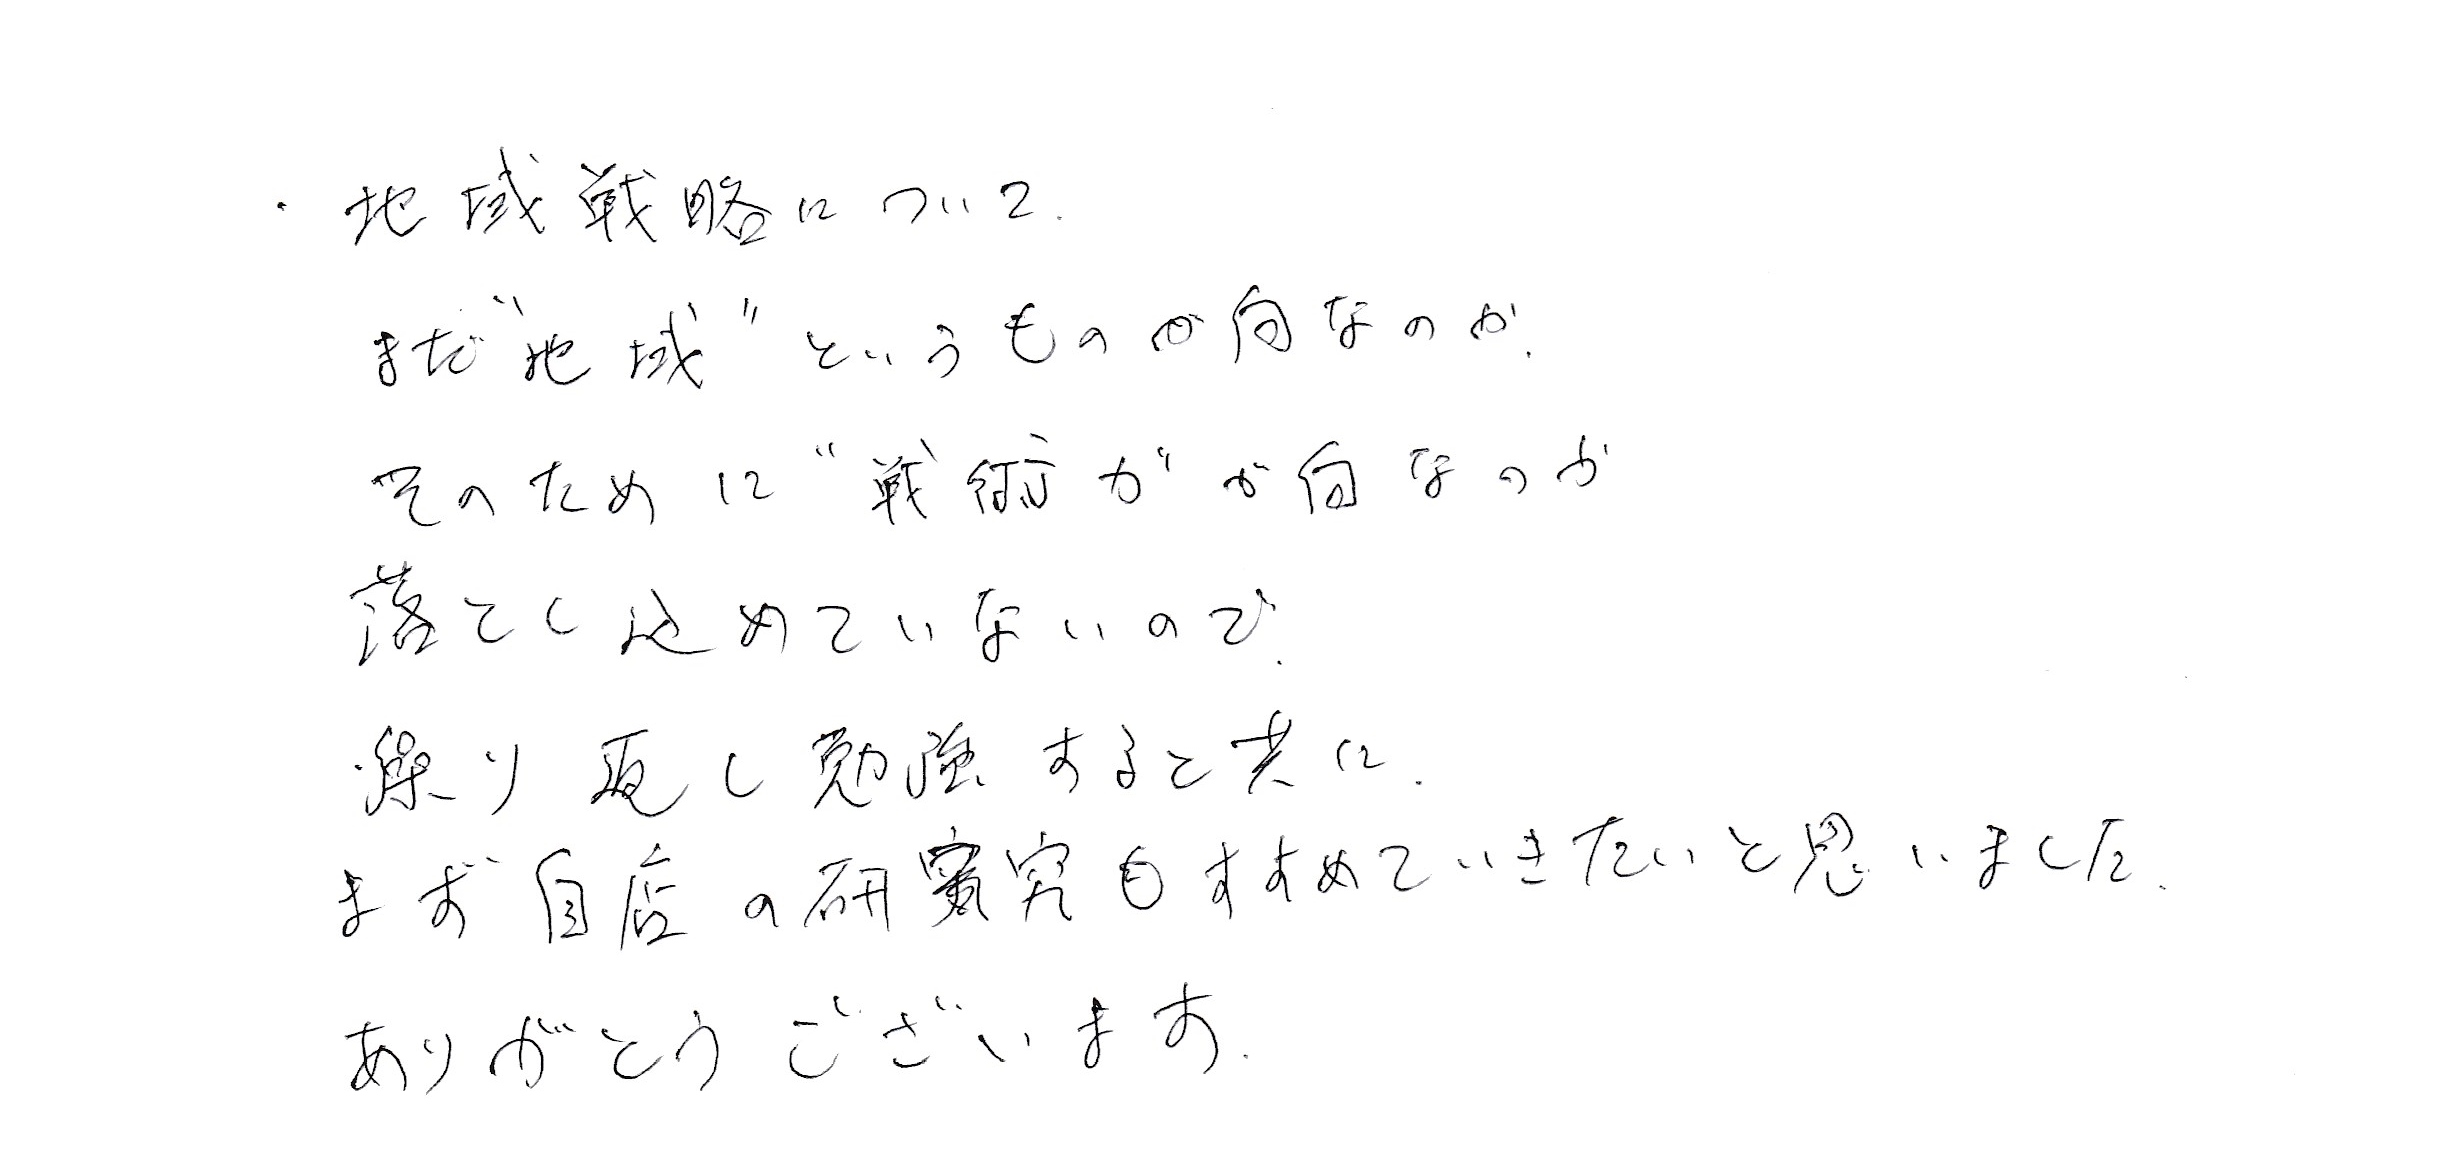 ・地域戦略について.
まだ"地域"というものが何なのか.
そのために"戦術が"が何なのか
落とし込めていないので.
繰り返し勉強すると共に.
まず自店の研究もすすめていきたいと思いました.
ありがとうございます.